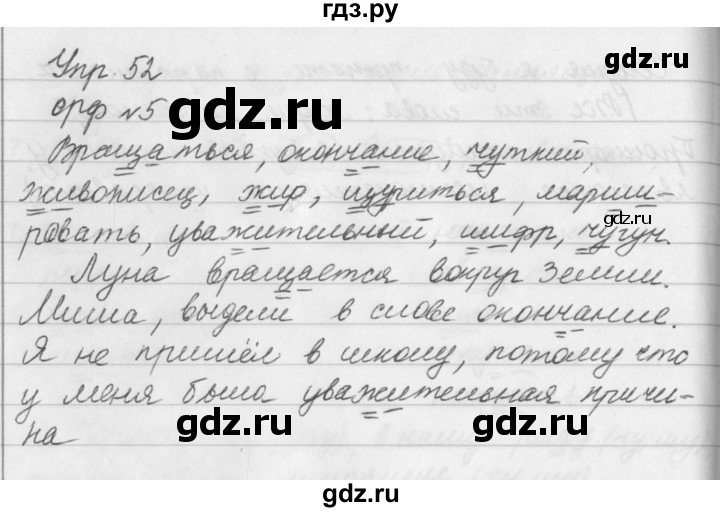 гдз.ру
Упр. 52
орф №5
Вращаться, окончание, чуткий,
живописец, жир, щуриться, марши-
ровать, уважительный, шифр, чугун.
Луна вращается вокруг Земли.
Миша, выдели в слове окончание.
Я не пришёл в школу, потому что
у меня была уважительная причи-
на
gdz.ru
gdz.ru
gdz.ru
gdz.ru
gdz.ru